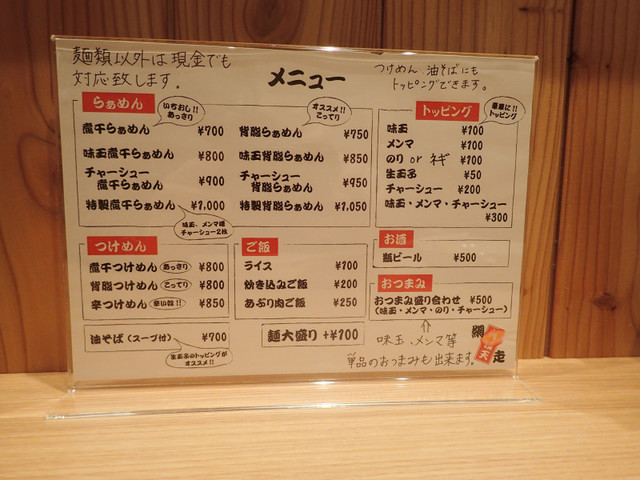 麺類以外は現金でも
対応致します。
メニュー
つけめん 油そばにも
トッピングできます。
らぁめん
いちおし!!
あっさり
煮干らぁめん ¥700
味玉煮干らぁめん ¥800
チャーシュー
煮干らぁめん ¥900
特製煮干らぁめん ¥1,000
味玉、メンマ増
チャーシュー2枚
オススメ!!
こってり
背脂らぁめん ¥750
味玉背脂らぁめん ¥850
チャーシュー
背脂らぁめん ¥950
特製背脂らぁめん ¥1,050
トッピング
豪華に!!
トッピング
味玉 ¥100
メンマ ¥100
のり or ネギ ¥100
生玉子 ¥50
チャーシュー ¥200
味玉・メンマ・チャーシュー
¥300
つけめん
煮干つけめん あっさり ¥800
背脂つけめん こってり ¥800
辛つけめん 辛い数!! ¥850
油そば(スープ付) ¥700
生玉子のトッピングが
オススメ!!
ご飯
ライス ¥100
炊き込みご飯 ¥200
あぶり肉ご飯 ¥250
麺大盛り +¥100
お酒
瓶ビール ¥500
おつまみ
おつまみ盛り合わせ ¥500
(味玉・メンマ・のり・チャーシュー)
⇧
味玉、メンマ等
単品のおつまみも出来ます。
網
走
天